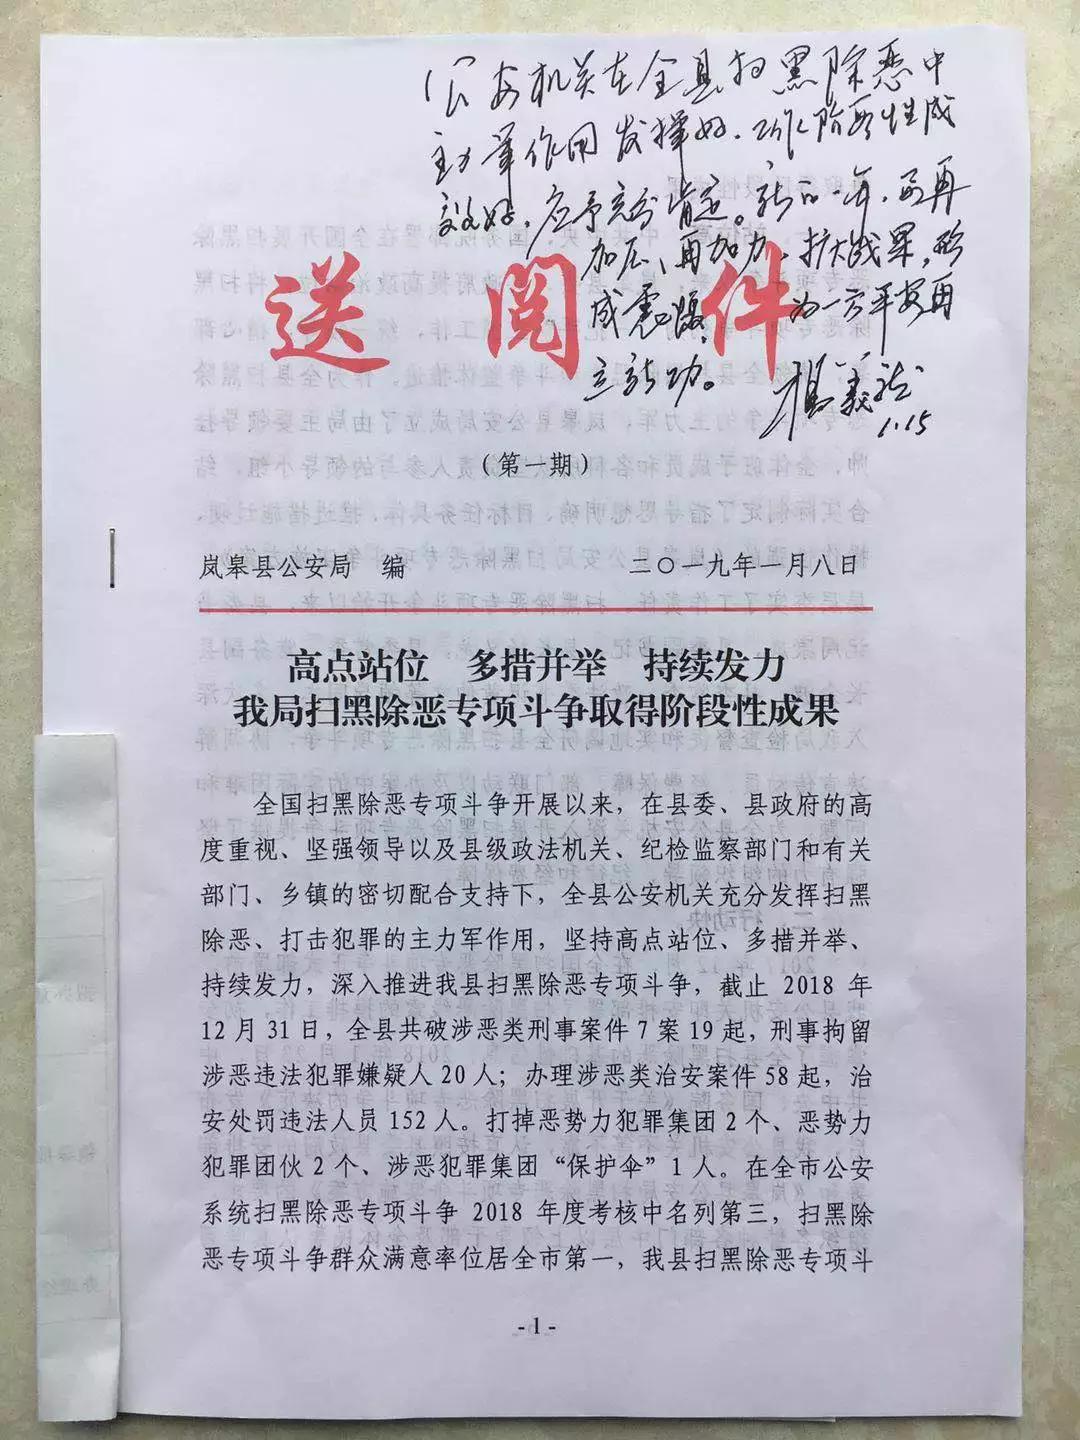 公安机关在全县扫黑除恶中
主力军作用发挥好,工作阶段性成
效好,应予充分肯定。新的一年,要再
加压、再加力,扩大战果,形
成震慑,为一方平安再
立新功。
杨义龙
1.15
送阅件
(第一期)
岚皋县公安局 编 二〇一九年一月八日
高点站位 多措并举 持续发力
我局扫黑除恶专项斗争取得阶段性成果
全国扫黑除恶专项斗争开展以来,在县委、县政府的高
度重视、坚强领导以及县级政法机关、纪检监察部门和有关
部门、乡镇的密切配合支持下,全县公安机关充分发挥扫黑
除恶、打击犯罪的主力军作用,坚持高点站位、多措并举、
持续发力,深入推进我县扫黑除恶专项斗争,截止 2018 年
12 月 31 日,全县共破涉恶类刑事案件 7 案 19 起,刑事拘留
涉恶违法犯罪嫌疑人 20 人;办理涉恶类治安案件 58 起,治
安处罚违法人员 152 人。打掉恶势力犯罪集团 2 个、恶势力
犯罪团伙 2 个、涉恶犯罪集团“保护伞”1 人。在全市公安
系统扫黑除恶专项斗争 2018 年度考核中名列第三,扫黑除
恶专项斗争群众满意率位居全市第一,我县扫黑除恶专项斗
- 1 -